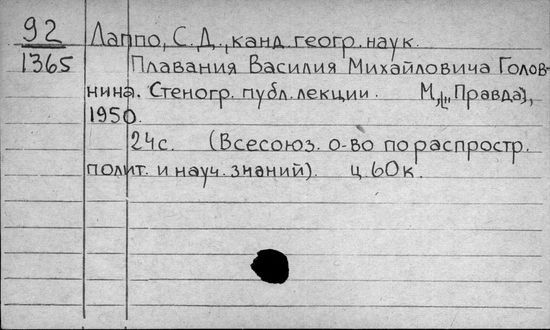 92
1365
Лаппо, С.Д., канд. геогр. наук.
Плавания Василия Михайловича Голов-
нина. Стеногр. публ. лекции. М., ["Правда"],
1950.
24с. (Всесоюз. о-во по распростр.
полит. и науч. знаний). ц. 60к.